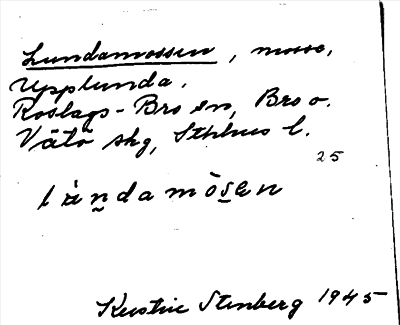 Lundamossen, mosse,
Upplunda.
Roslags-Bro sn, Bro o.
Vätö skg, Sthlms l.
25
lùndamòsen
Kerstin Stenberg 1945